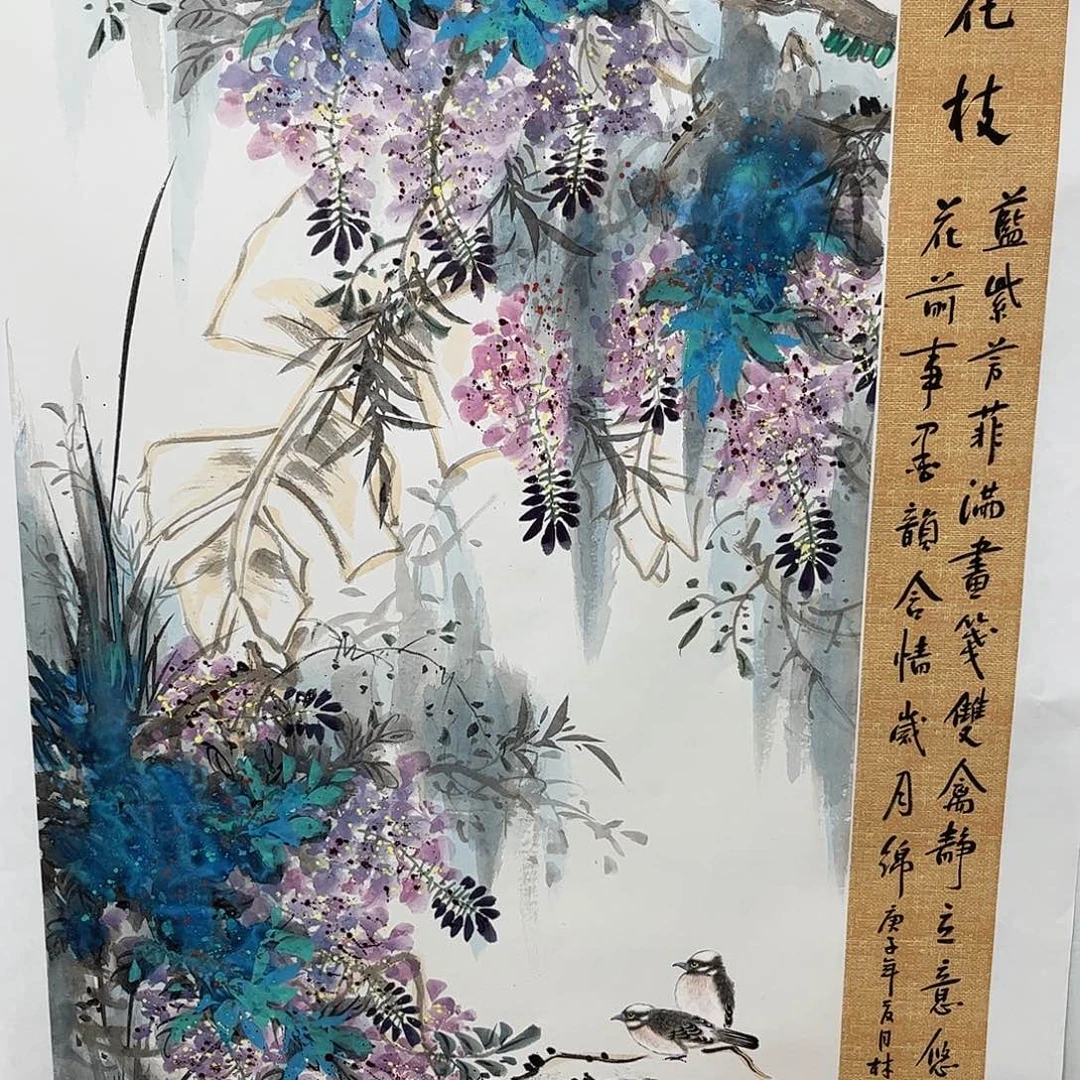 花枝
藍紫芳菲滿畫箋雙禽靜立意悠
花前事墨韻含情歲月綿
庚子年夏月林